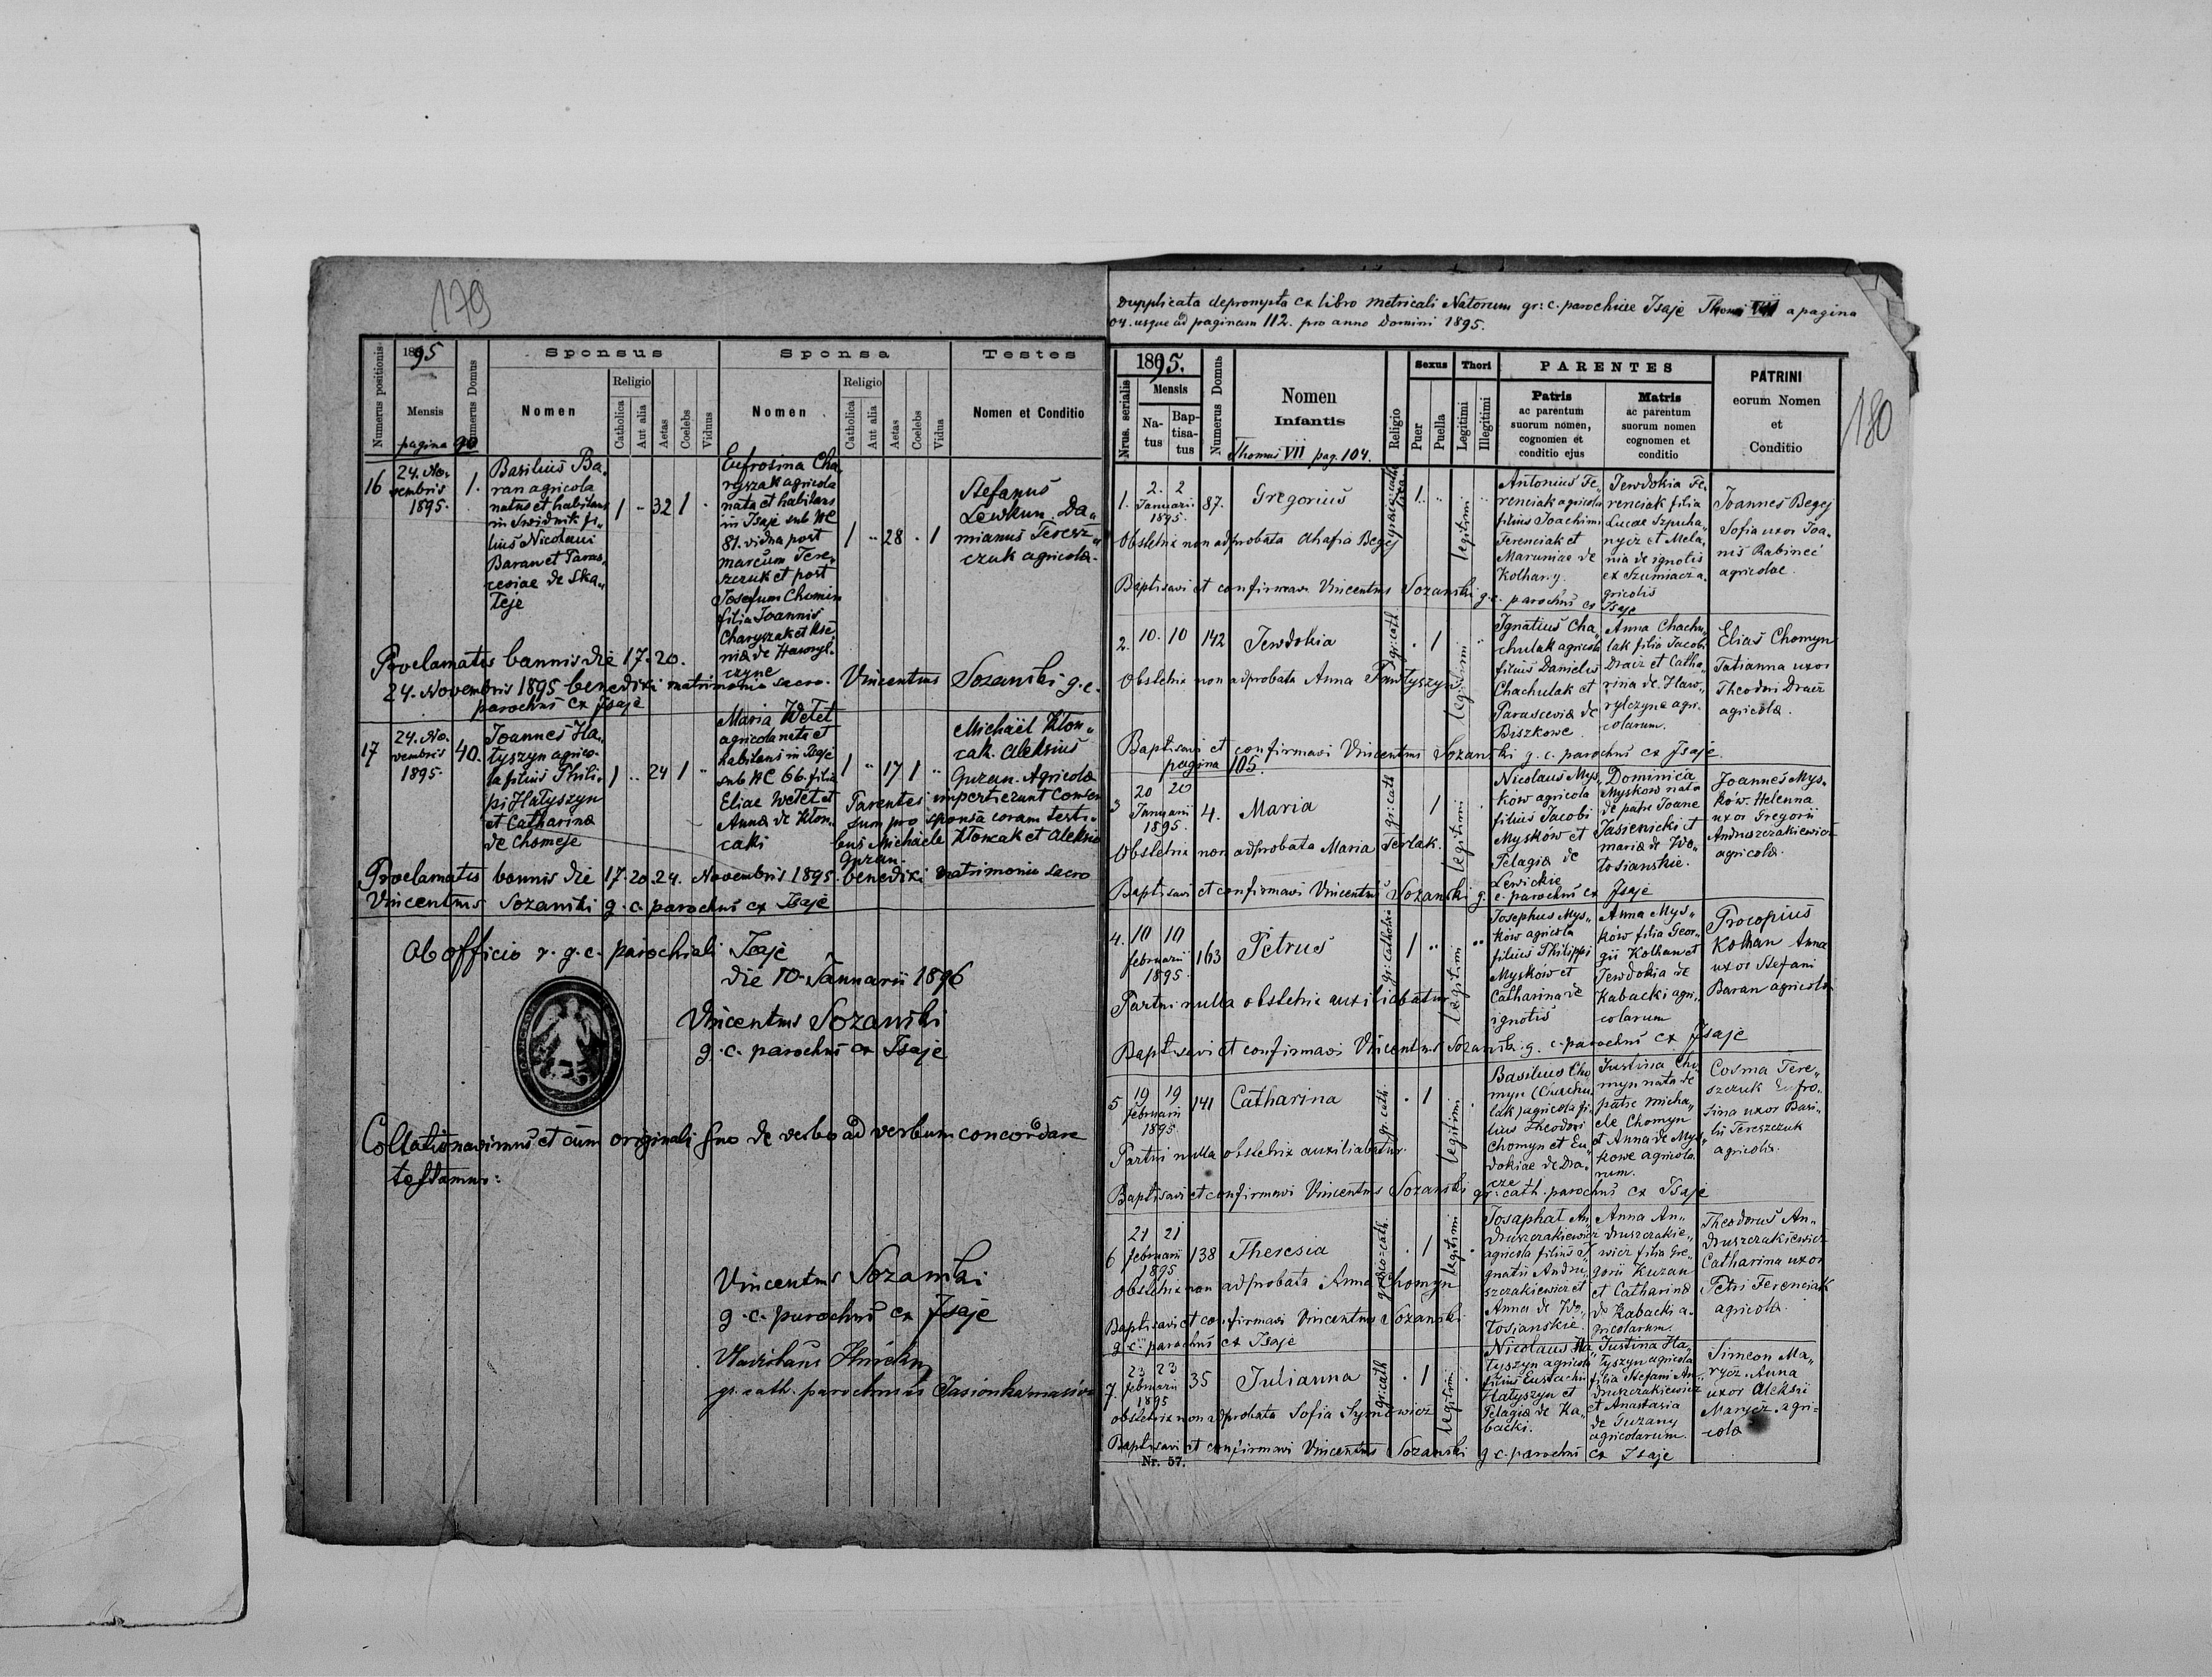 179
1895
Numerus positionis
Mensis
pagina 90
Numerus Domus
Sponsus
Nomen
Religio
Catholica
Aut alia
Aetas
Coelebs
Viduus
Sponsa
Nomen
Religio
Catholica
Aut alia
Aetas
Coelebs
Vidua
Testes
Nomen et Conditio
16
24. No-
vembris
1895.
1.
Basilius Ba-
ran agricola
natus et habitans
in Swidnik fi-
lius Nicolaui
Baran et Paras-
ceviae de Ska-
1 .. 32 1 .
Eufrosina Cha-
ryszak agricola
nata et habitans
in Isaje sub NC
81. vidua post
marcum Tere-
szczuk et post
Josefum Chomin
filia Joannis
Charyszak et Kse-
nia de Hawryl-
czyne
1 .. 28 . 1
Stefanus
Lewkun. Da-
mianus Teresz-
czuk agricola.
Proclamatis bannis die 17. 20.
24. Novembris 1895 benedixi matrimonio sacro. Vincentius Sozanski g. c.
parochus ex Isaje
17
24. No-
vembris
1895.
40.
Joannes Ha-
tyszyn agrico-
la filius Phili-
pi Hatyszyn
et Catharina
de Chomeje
1 .. 24 1 ..
Maria Wetet
agricola nata et
habitans in Isaje
sub NC 66. filia
Eliae Wetet et
Anna de Klom-
caki
1 .. 17 1 ..
Michaël Klom-
cak. Aleksius
Guzan. Agricola
Parentes impertierunt consen
sum pro sponsa coram testi-
bus Michaele Klomcak et Aleksio
Guzan.
Proclamatis bannis die 17. 20. 24. Novembris 1895. benedixi matrimonio sacro
Vincentius Sozanski g. c. parochus ex Isaje
Ab officio r. g. c. parochiali Isaje
die 10. Januarii 1896
Vincentius Sozanski
g. c. parochus ex Isaje
Collationavimus et cum originali suo de verbo ad verbum concordare
testamur:
Vincentius Sozanski
g. c. parochus ex Isaje
gr. cath. parochus Jasionka
Dupplicata deprompta ex libro metricali Natorum gr: c. parochiae Isaje Thomi VII a pagina
04. usque ad paginam 112. pro anno Domini 1895.
180
1895.
Nrus. serialis
Mensis
Na-
tus
Bap-
tisa-
tus
Numerus Domus
Nomen
Infantis
Thomus VII pag. 104.
Religio
Sexus
Puer
Puella
Thori
Legitimi
Illegitimi
PARENTES
Patris
ac parentum
suorum nomen,
cognomen et
conditio ejus
Matris
ac parentum
suorum nomen
cognomen et
conditio
PATRINI
eorum Nomen
et
Conditio
1.
2. 2
Januarii
1895.
87.
Gregorius
1. ..
legitimi
Antonius Fe-
renciak agricola
filius Joachimi
Ferenciak et
Maruniae de
Kolhany.
Jewdokia Fe-
renciak filia
Lucae Szpuha-
nycz et Mela-
nia de ignotis
ex Szumiacz a-
gricolis
Joannes Begej
Sofia uxor Joa-
nis Rabinec
agricolae.
Obstetrix non adprobata Ahafia Begej
Baptisavi et confirmavi Vincentius Sozanski g. c. parochus ex Isaje
2.
10. 10
142
Jewdokia
gr: cath
. 1
legitimi
Ignatius Cha-
chulak agricola
filius Danielis
Chachulak et
Parascevia de
Biszkowe
Anna Chachu-
lak filia Jacobi
Dracz et Catha-
rina de Haw-
rylczyne agri-
colarum.
Elias Chomyn
Tatianna uxor
Theodori Dracz
agricola.
Obstetrix non adprobata Anna Pawlyszyn
Baptisavi et confirmavi Vincentius Sozanski g. c. parochus ex Isaje
pagina 105.
3
20 20
Januarii
1895.
4.
Maria
gr: cath
1
legitimi
Nicolaus Mys-
ków agricola
filius Jacobi
Mysków et
Pelagia de
Lewickie
Dominica
Myskow nata
de patre Joane
Jasienicki et
maria de Wo-
tosianskie.
Joannes Mys-
ków. Helenna
uxor Gregorii
Andruszczakiewicz
agricola.
Obstetrix non adprobata Maria Terlak.
Baptisavi et confirmavi Vincentius Sozanski g. c. parochus ex Isaje
4.
10 10
februarii
1895.
163
Petrus
gr: catholica
1 ..
legitimi
..
Josephus Mys-
ków agricola
filius Philippi
Mysków et
Catharina de
ignotis
Anna Mys-
ków filia Geor-
gii Kolhan et
Jewdokia de
Kabacki agri-
colarum
Procopius
Kolhan Anna
uxor Stefani
Baran agricola
Partui nulla obstetrix auxiliabatur
Baptisavi et confirmavi Vincentius Sozanski g. c. parochus ex Isaje
5
19 19
februarii
1895.
141
Catharina
gr: cath.
. 1
legitimi
Basilius Cho
myn (Chachu
lak) agricola fi-
lius Theodori
Chomyn et Eu-
dokiae de Dra-
cze
Justina Cho
myn nata de
patre Micha-
ele Chomyn
et Anna de Mys-
kowe agricola-
rum.
Cosma Tere-
szczuk Eufro-
sina uxor Basi-
lii Tereszczuk
agricola.
Partui nulla obstetrix auxiliabatur.
Baptisavi et confirmavi Vincentius Sozanski gr: cath. parochus ex Isaje
6
21 21
februarii
1895
138
Theresia
graeco=cath.
. 1
legitimi
Josaphat An-
druszczakiewicz
agricola filius I-
gnatii Andru-
szczakiewicz et
Anna de Wo-
tosianskie.
Anna An-
druszczakie-
wicz filia Gre-
gorii Kuzan
et Catharina
de Kabacki a-
gricolarum.
Theodorus An-
druszczakiewicz
Catharina uxor
Petri Ferenciak
agricola.
Obstetrix non adprobata Anna Chomyn
Baptisavi et confirmavi Vincentius Sozanski
g. c. parochus ex Isaje
7.
23 23
februarii
1895
35
Julianna
gr: cath
. 1
legitimi
Nicolaus Ha-
tyszyn agricola
filius Eustachii
Hatyszyn et
Pelagia de Ka-
backi.
Justina Ha-
tyszyn agricola
filia Stefani An-
druszczakiewicz
et Anastasia
de Guzany
agricolarum.
Simeon Ma-
rycz. Anna
uxor Aleksii
Marycz agri-
cola
obstetrix non adprobata Sofia Symowicz
Baptisavi et confirmavi Vincentius Sozanski g. c. parochus ex Isaje
Nr. 57.